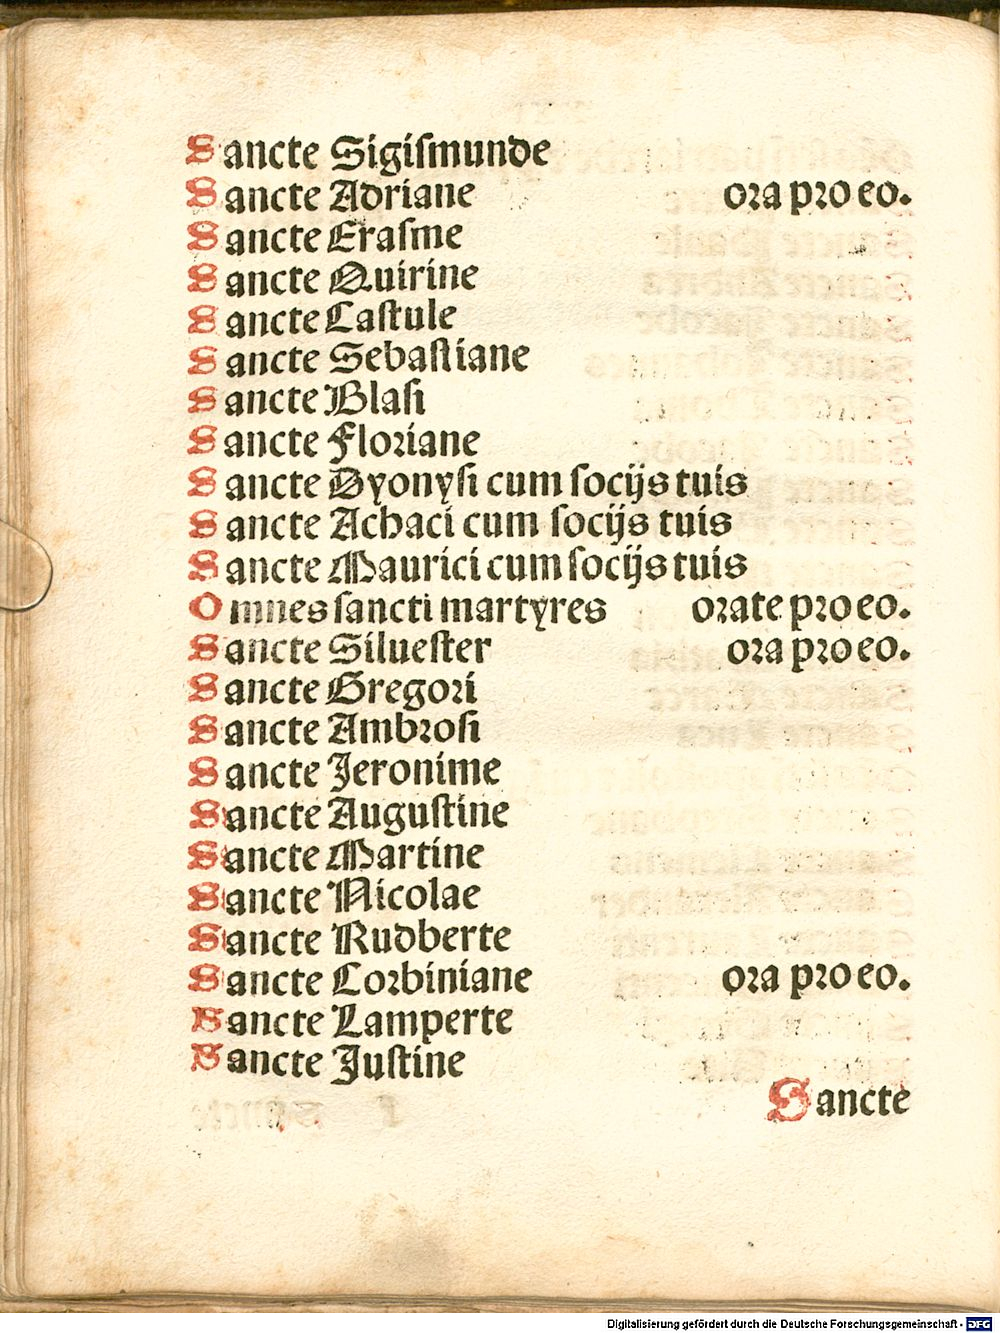 Sancte Sigiſmunde
Sancte Adriane ora pro eo.
Sancte Eraſme
Sancte Quirine
Sancte Caſtule
Sancte Sebaſtiane
Sancte Blaſi
Sancte Floriane
Sancte Dyonyſi cum ſocijs tuis
Sancte Achaci cum ſocijs tuis
Sancte Maurici cum ſocijs tuis
Omnes ſancti martyres orate pro eo.
Sancte Silueſter ora pro eo.
Sancte Gregori
Sancte Ambroſi
Sancte Jeronime
Sancte Auguſtine
Sancte Martine
Sancte Nicolae
Sancte Rudberte
Sancte Corbiniane ora pro eo.
Sancte Lamperte
Sancte Juſtine
Sancte
Digitalisierung gefördert durch die Deutsche Forschungsgemeinschaft - DFG